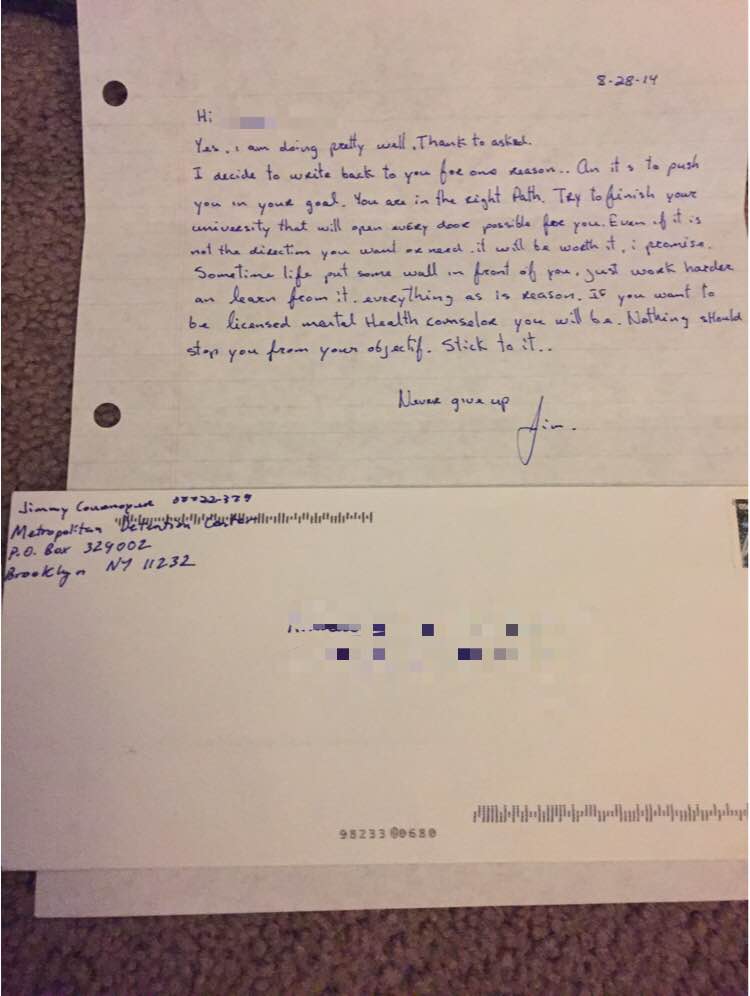 8-28-14
Hi
Yes, i am doing pretty well. Thank to asked.
I decide to write back to you for one reason.. An it s to push
you in your goal. You are in the right Path. Try to finish your
university that will open every door possible for you. Even if it is
not the direction you want or need. it will be worth it, i promise.
Sometime life put some wall in front of you. just work harder
an learn from it. everything as is reason. If you want to
be licensed mental Health counselor you will be. Nothing should
stop you from your objectif. Stick to it..
Never give up
Jim.
Jimmy
Metropolitan Detention Center
P.O. Box 329002
Brooklyn NY 11232
98233 0680